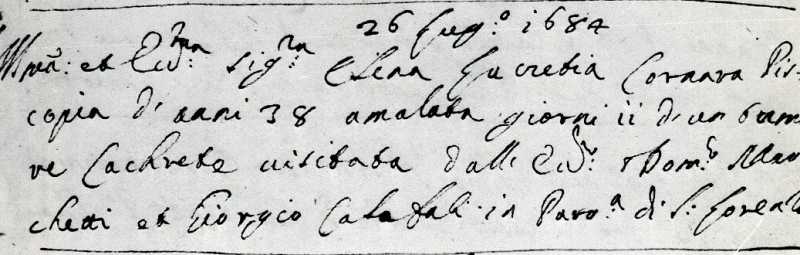 26 Lug.º 1684
Illma: et Ecc.ma Sig.ra Elena Lucretia Cornara Pis-
copia d'anni 38 amalata giorni ii d'un
ve visitata dalli Ecc.ti Dom.co Mar
chetti et Giorgio Calafati in Paro.a di S: Loren